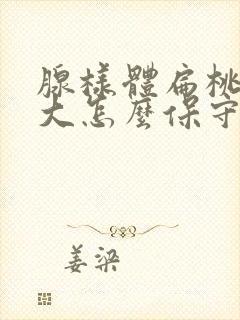 腺樣體扁桃
大怎麼保守
姜梁